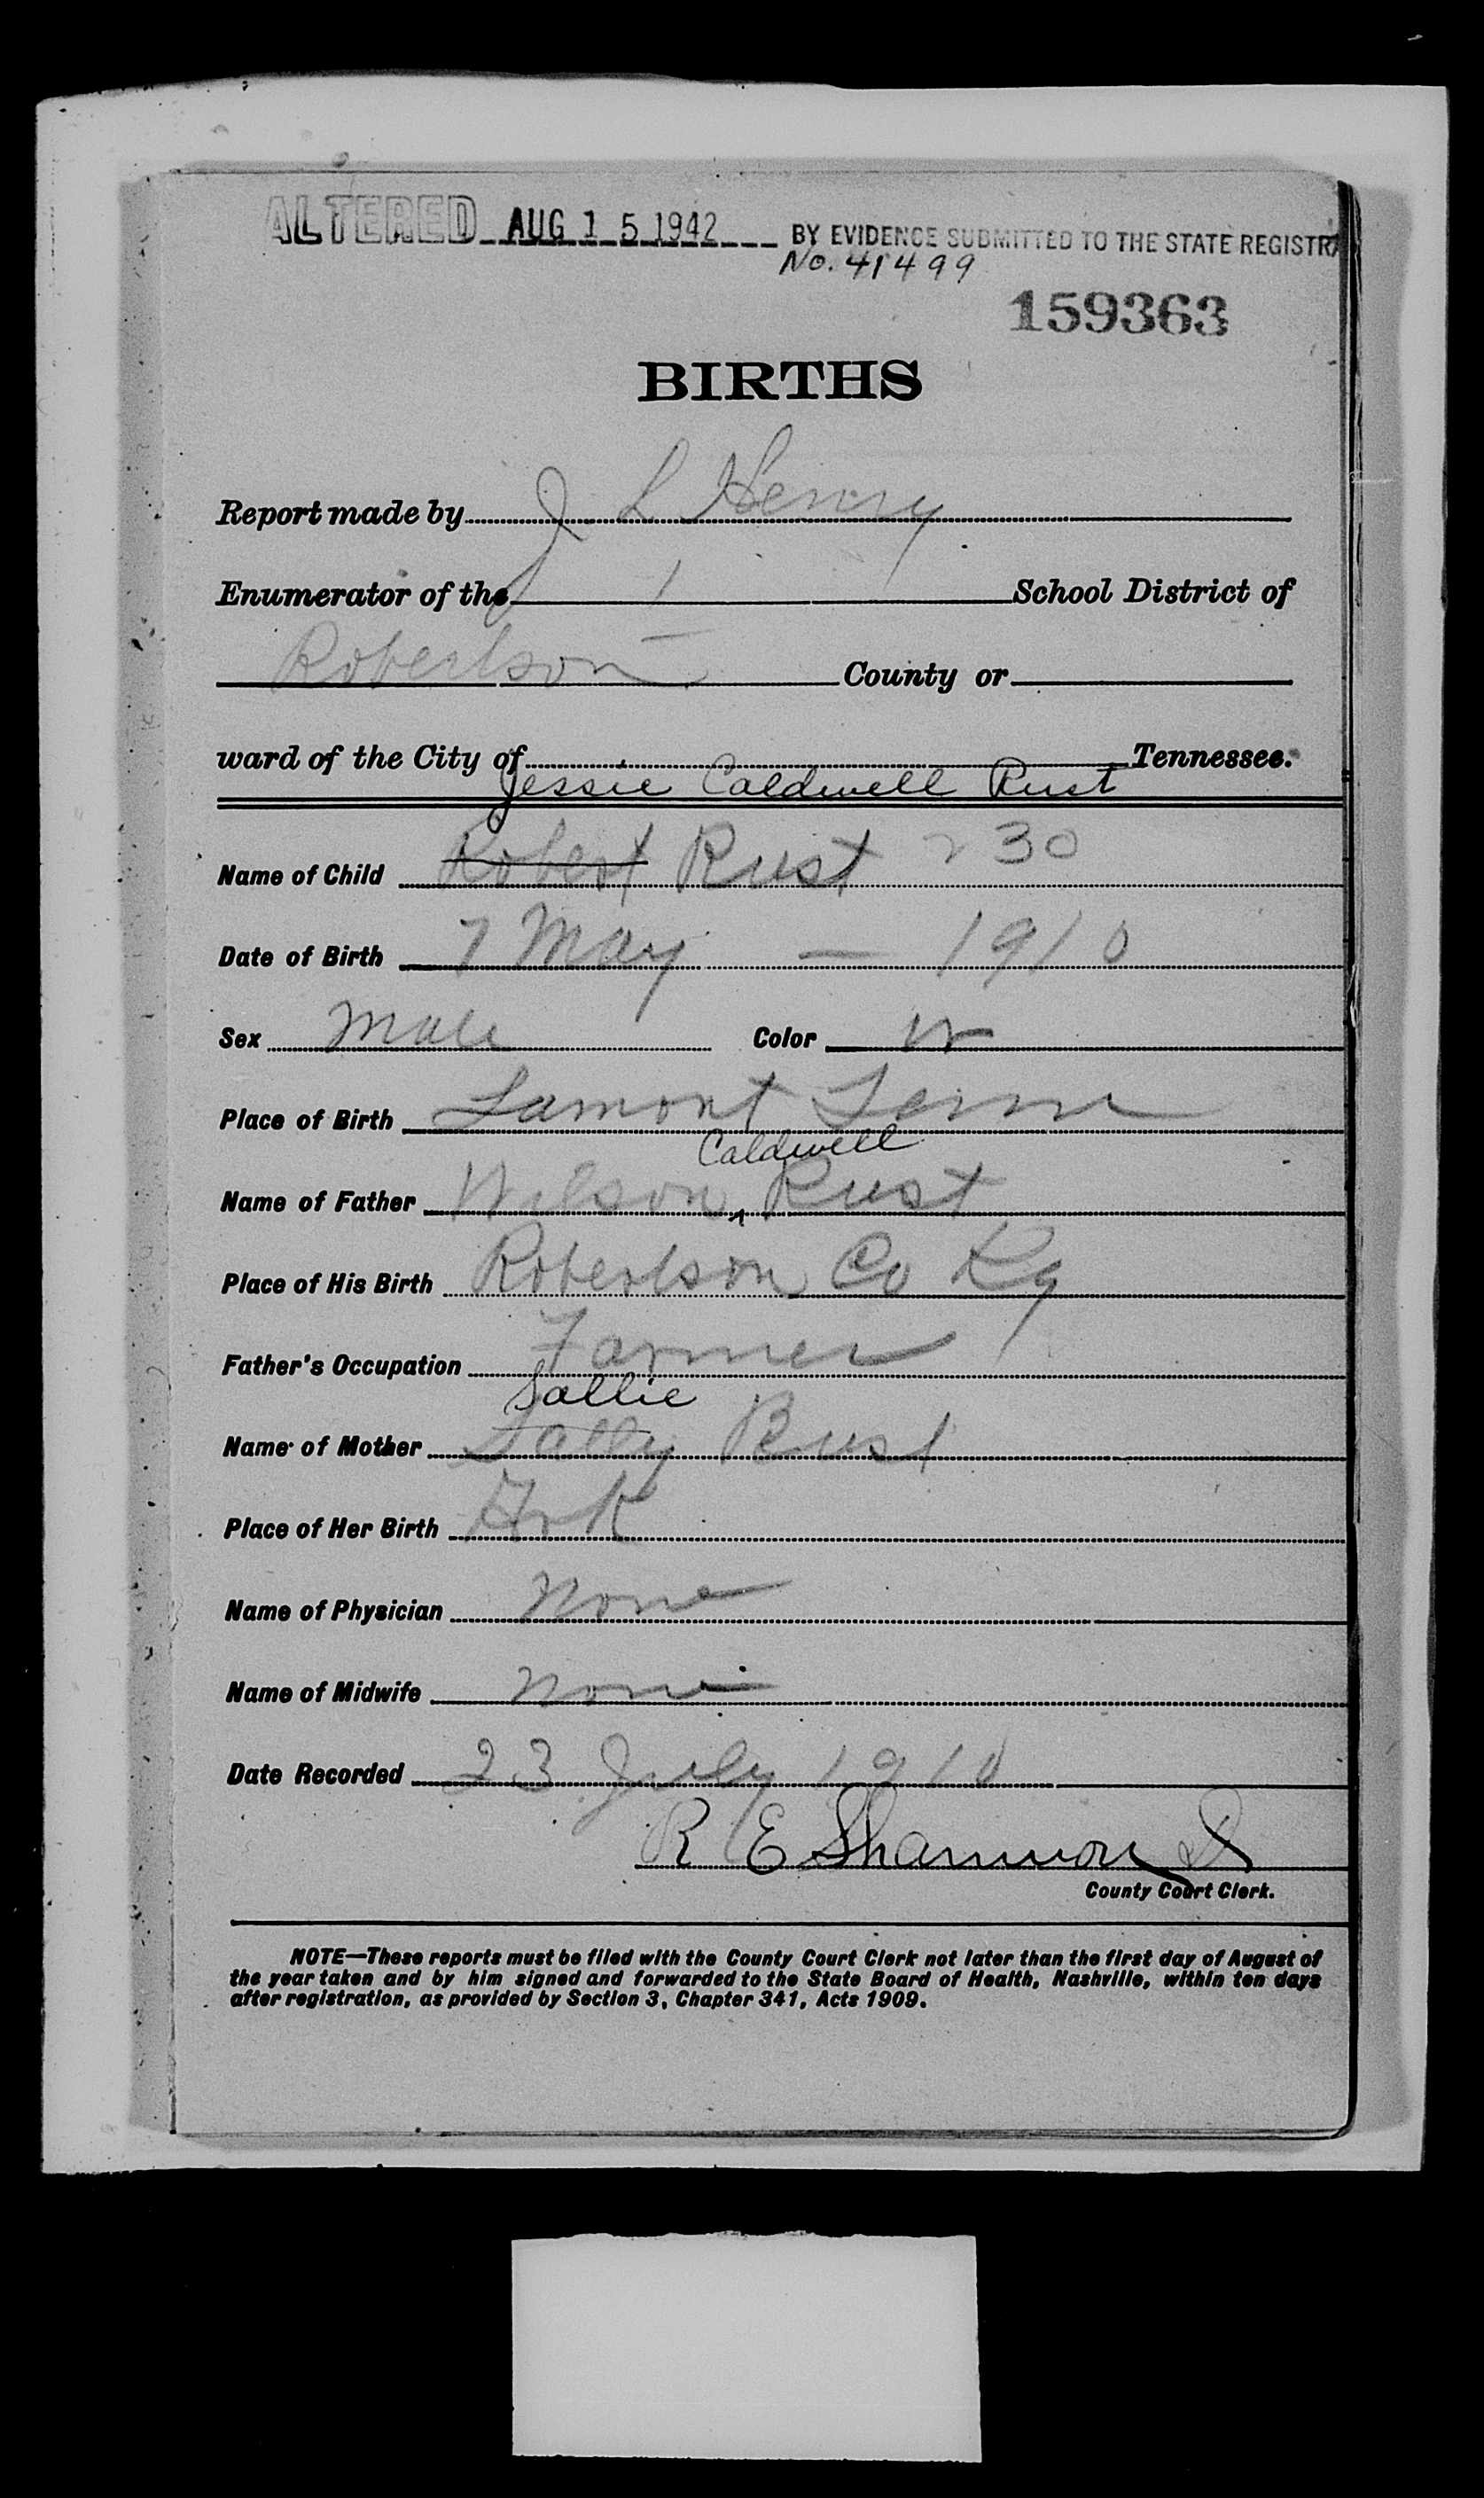 ALTERED AUG 15 1942 BY EVIDENCE SUBMITTED TO THE STATE REGISTRA
No. 41499
159363
BIRTHS
Report made by J L Henry
Enumerator of the 1 School District of
Robertson County or
ward of the City of Tennessee.
Jessie Caldwell Rust
Name of Child Robert Rust 230
Date of Birth 7 May — 1910
Sex Male Color W
Place of Birth Lamont Tenn
Caldwell
Name of Father Wilson ^ Rust
Place of His Birth Robertson Co Ky
Father's Occupation Farmer
Sallie
Name of Mother Sally Rust
Place of Her Birth
Name of Physician None
Name of Midwife None
Date Recorded 23 July 1910
R E Shannon
County Court Clerk.
NOTE—These reports must be filed with the County Court Clerk not later than the first day of August of
the year taken and by him signed and forwarded to the State Board of Health, Nashville, within ten days
after registration, as provided by Section 3, Chapter 341, Acts 1909.